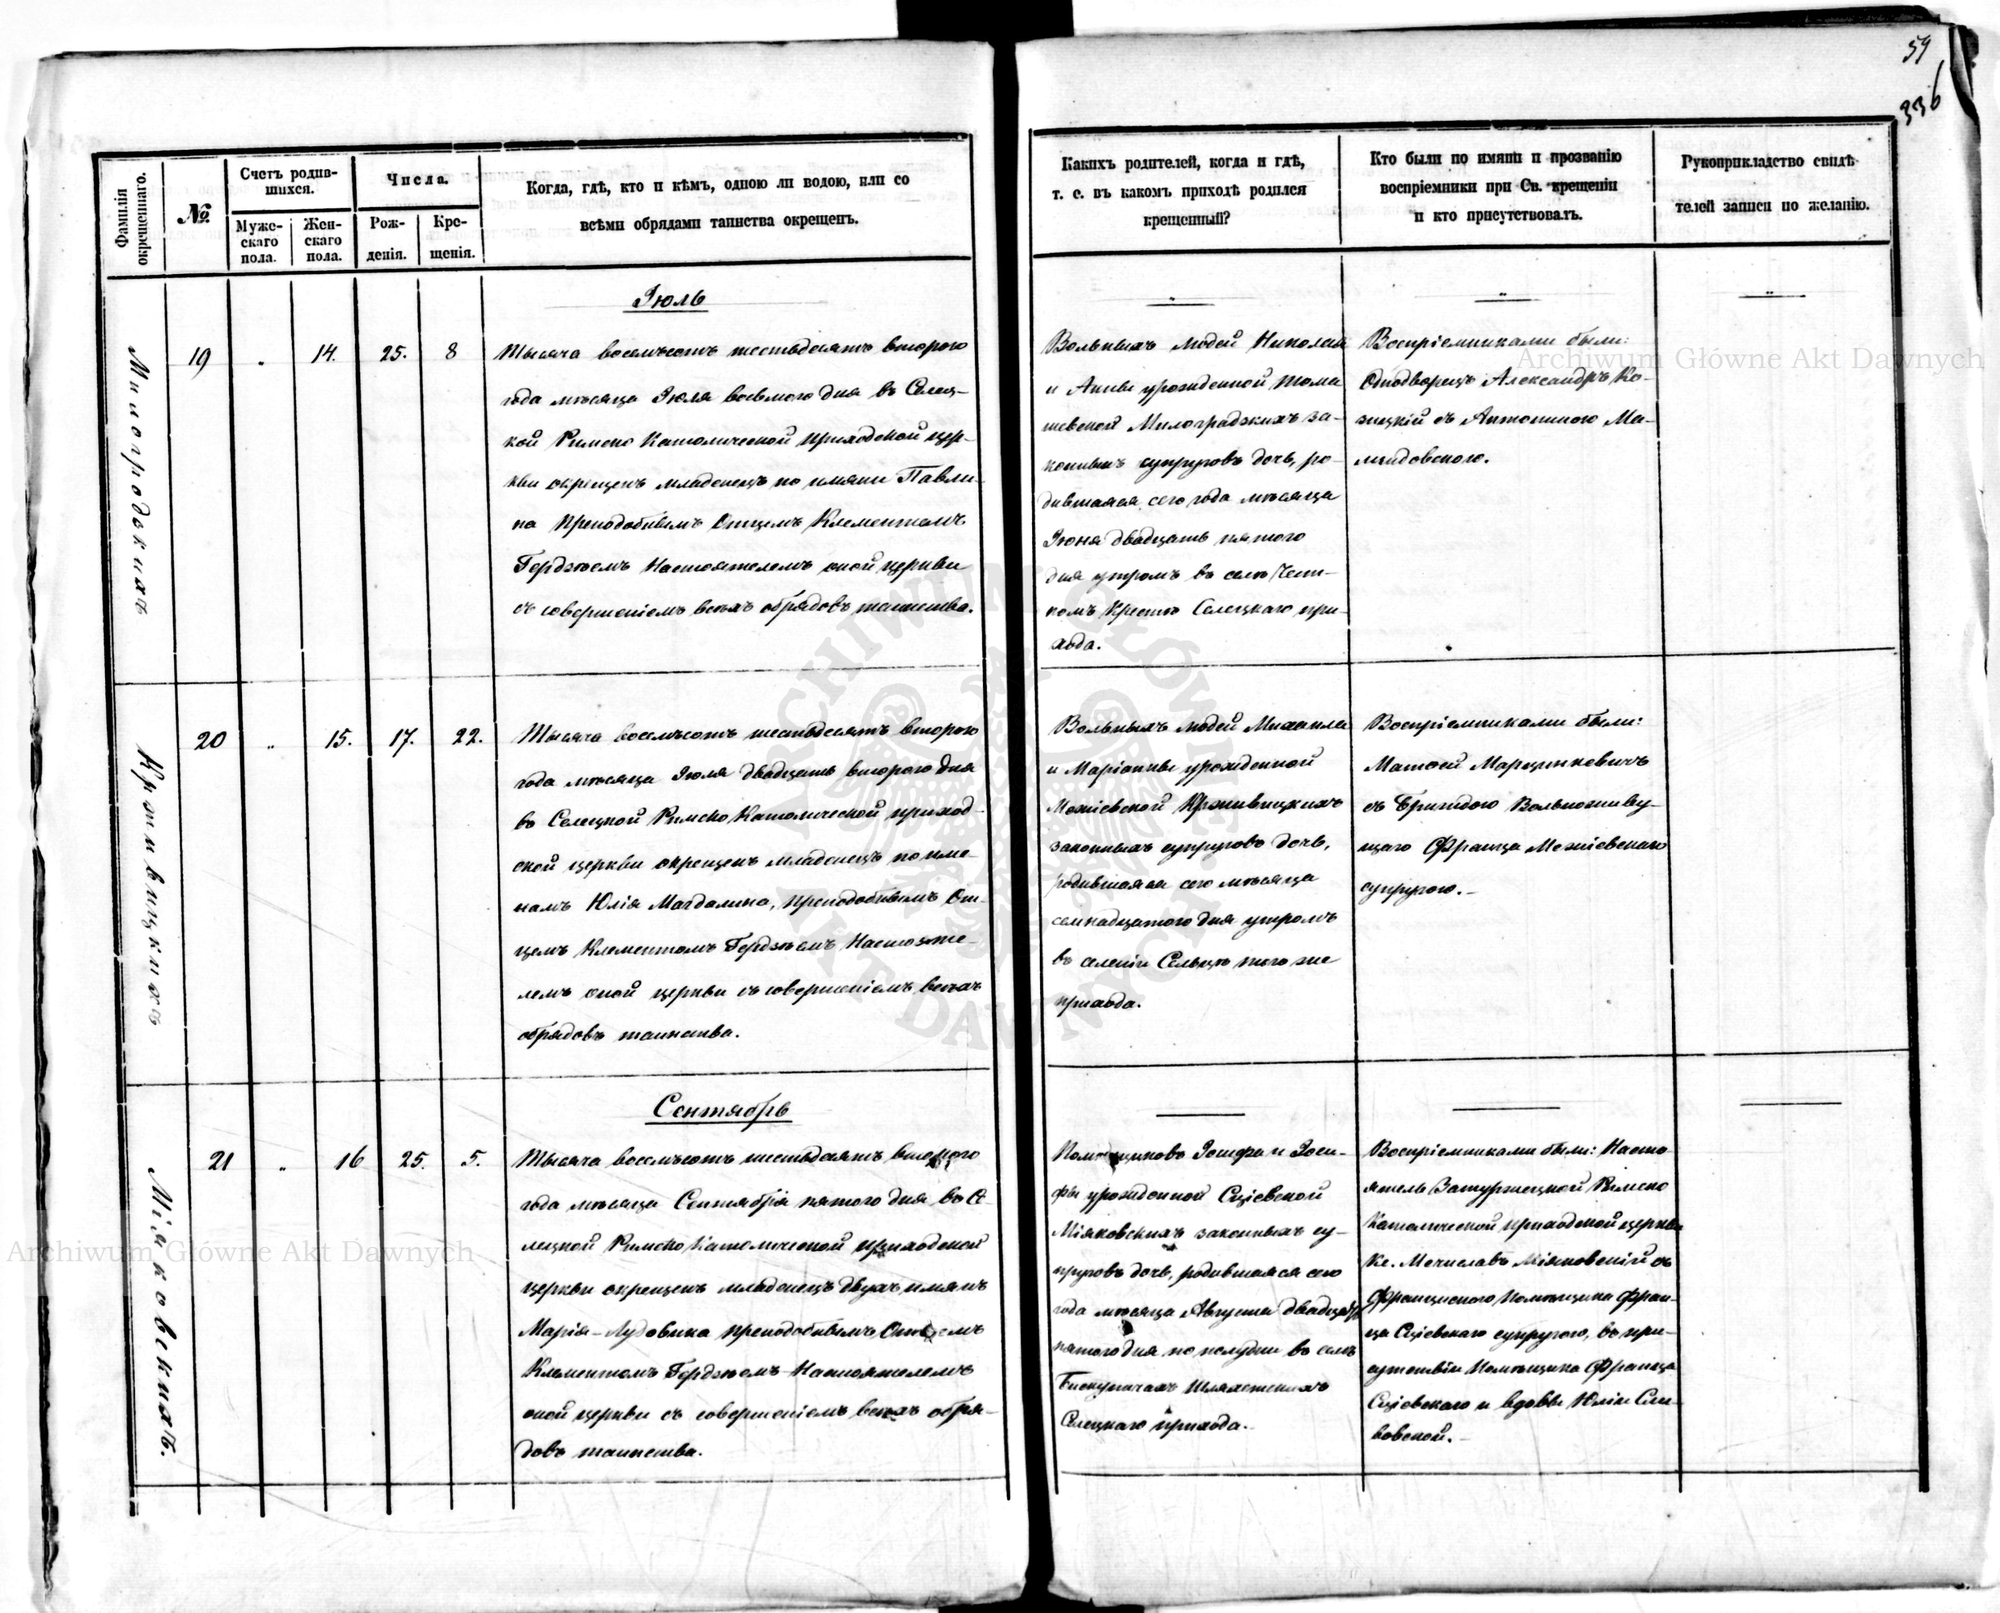 59
336
Фамилія окрещеннаго.
№
Счетъ родившихся.
Мужескаго пола.
Женскаго пола.
Числа.
Рожденія.
Крещенія.
Когда, гдѣ, кто и кѣмъ, одною ли водою, или со
всѣми обрядами таинства окрещенъ.
Какихъ родителей, когда и гдѣ,
т. е. въ какомъ приходѣ родился
крещенный?
Кто были по имяни и прозванію
воспріемники при Св. крещеніи
и кто присутствовалъ.
Рукоприкладство свидѣ
телей записи по желанію.
Іюль
19 " 14. 25. 8
Тысяча восемьсотъ шестьдесятъ втораго
года мѣсяца Іюля восьмого дня въ Селец-
кой Римско Католической приходской цер-
кви окрещенъ младенецъ по имяни Павли-
на Преподобнымъ Отцемъ Клементомъ
Гердзѣемъ Настоятелемъ оной церкви
съ совершеніемъ всѣхъ обрядовъ таинства.
Вольныхъ людей Николая
и Анны урожденной Тома
шевской Милоградзкихъ за-
конныхъ супруговъ дочь, ро-
дившаяся сего года мѣсяца
Іюня двадцать пятого
дня утромъ въ селѣ
Крестѣ Селецкаго при-
хода.
Воспріемниками были:
Однодворецъ Александръ Ко-
зицкій съ Антониною Ма-
20 " 15. 17. 22.
Кржывицкихъ
Тысяча восемьсотъ шестьдесятъ второго
года мѣсяца Іюля двадцать второго дня
въ Селецкой Римско Католической приход-
ской церкви окрещенъ младенецъ по име-
намъ Юлія Магдалина, Преподобнымъ От-
цемъ Клементомъ Гердзѣемъ Настояте-
лемъ оной церкви съ совершеніемъ всѣхъ
обрядовъ таинства.
Вольныхъ людей Михаила
и Маріанны урожденной
Межіевской Кржывицкихъ
законныхъ супруговъ дочь,
родившаяся сего мѣсяца
семнадцатого дня утромъ
въ селеніи Сельцѣ того же
прихода.
Воспріемниками были:
Матѳей Марцинкевичъ
съ Бригидою Вольноживу-
щаго Франца Межіевскаго
супругою.
Сентябрь
21 " 16 25. 5.
Міаковскихъ.
Тысяча восемьсотъ шестьдесятъ второго
года мѣсяца Сентября пятого дня въ Се
лецкой Римско Католической приходской
церкви окрещенъ младенецъ двухъ имянъ
Марія-Лудовика преподобнымъ Отцемъ
Клементомъ Гердзѣемъ Настоятелемъ
оной церкви съ совершеніемъ всѣхъ обря-
довъ таинства.
Помѣщиковъ Іосифа и Зоси-
фы урожденной Сціевской
Міяковскихъ законныхъ су-
пруговъ дочь, родившаяся сего
года мѣсяца Августа двадцать
пятого дня по полудни въ селѣ
Бискупичахъ Шляхетскихъ
Селецкаго прихода.
Воспріемниками были: Насто
ятель Затурцецкой Римско
Католической приходской церкви
Кс. Мечиславъ Міяковскій съ
Францискою Помѣщика Фран-
ца Сціевскаго супругою, въ при-
сутствіи Помѣщика Франца
Сціевскаго и вдовы Юліи Сли-
вовской.
Archiwum Główne Akt Dawnych
Archiwum Główne Akt Dawnych